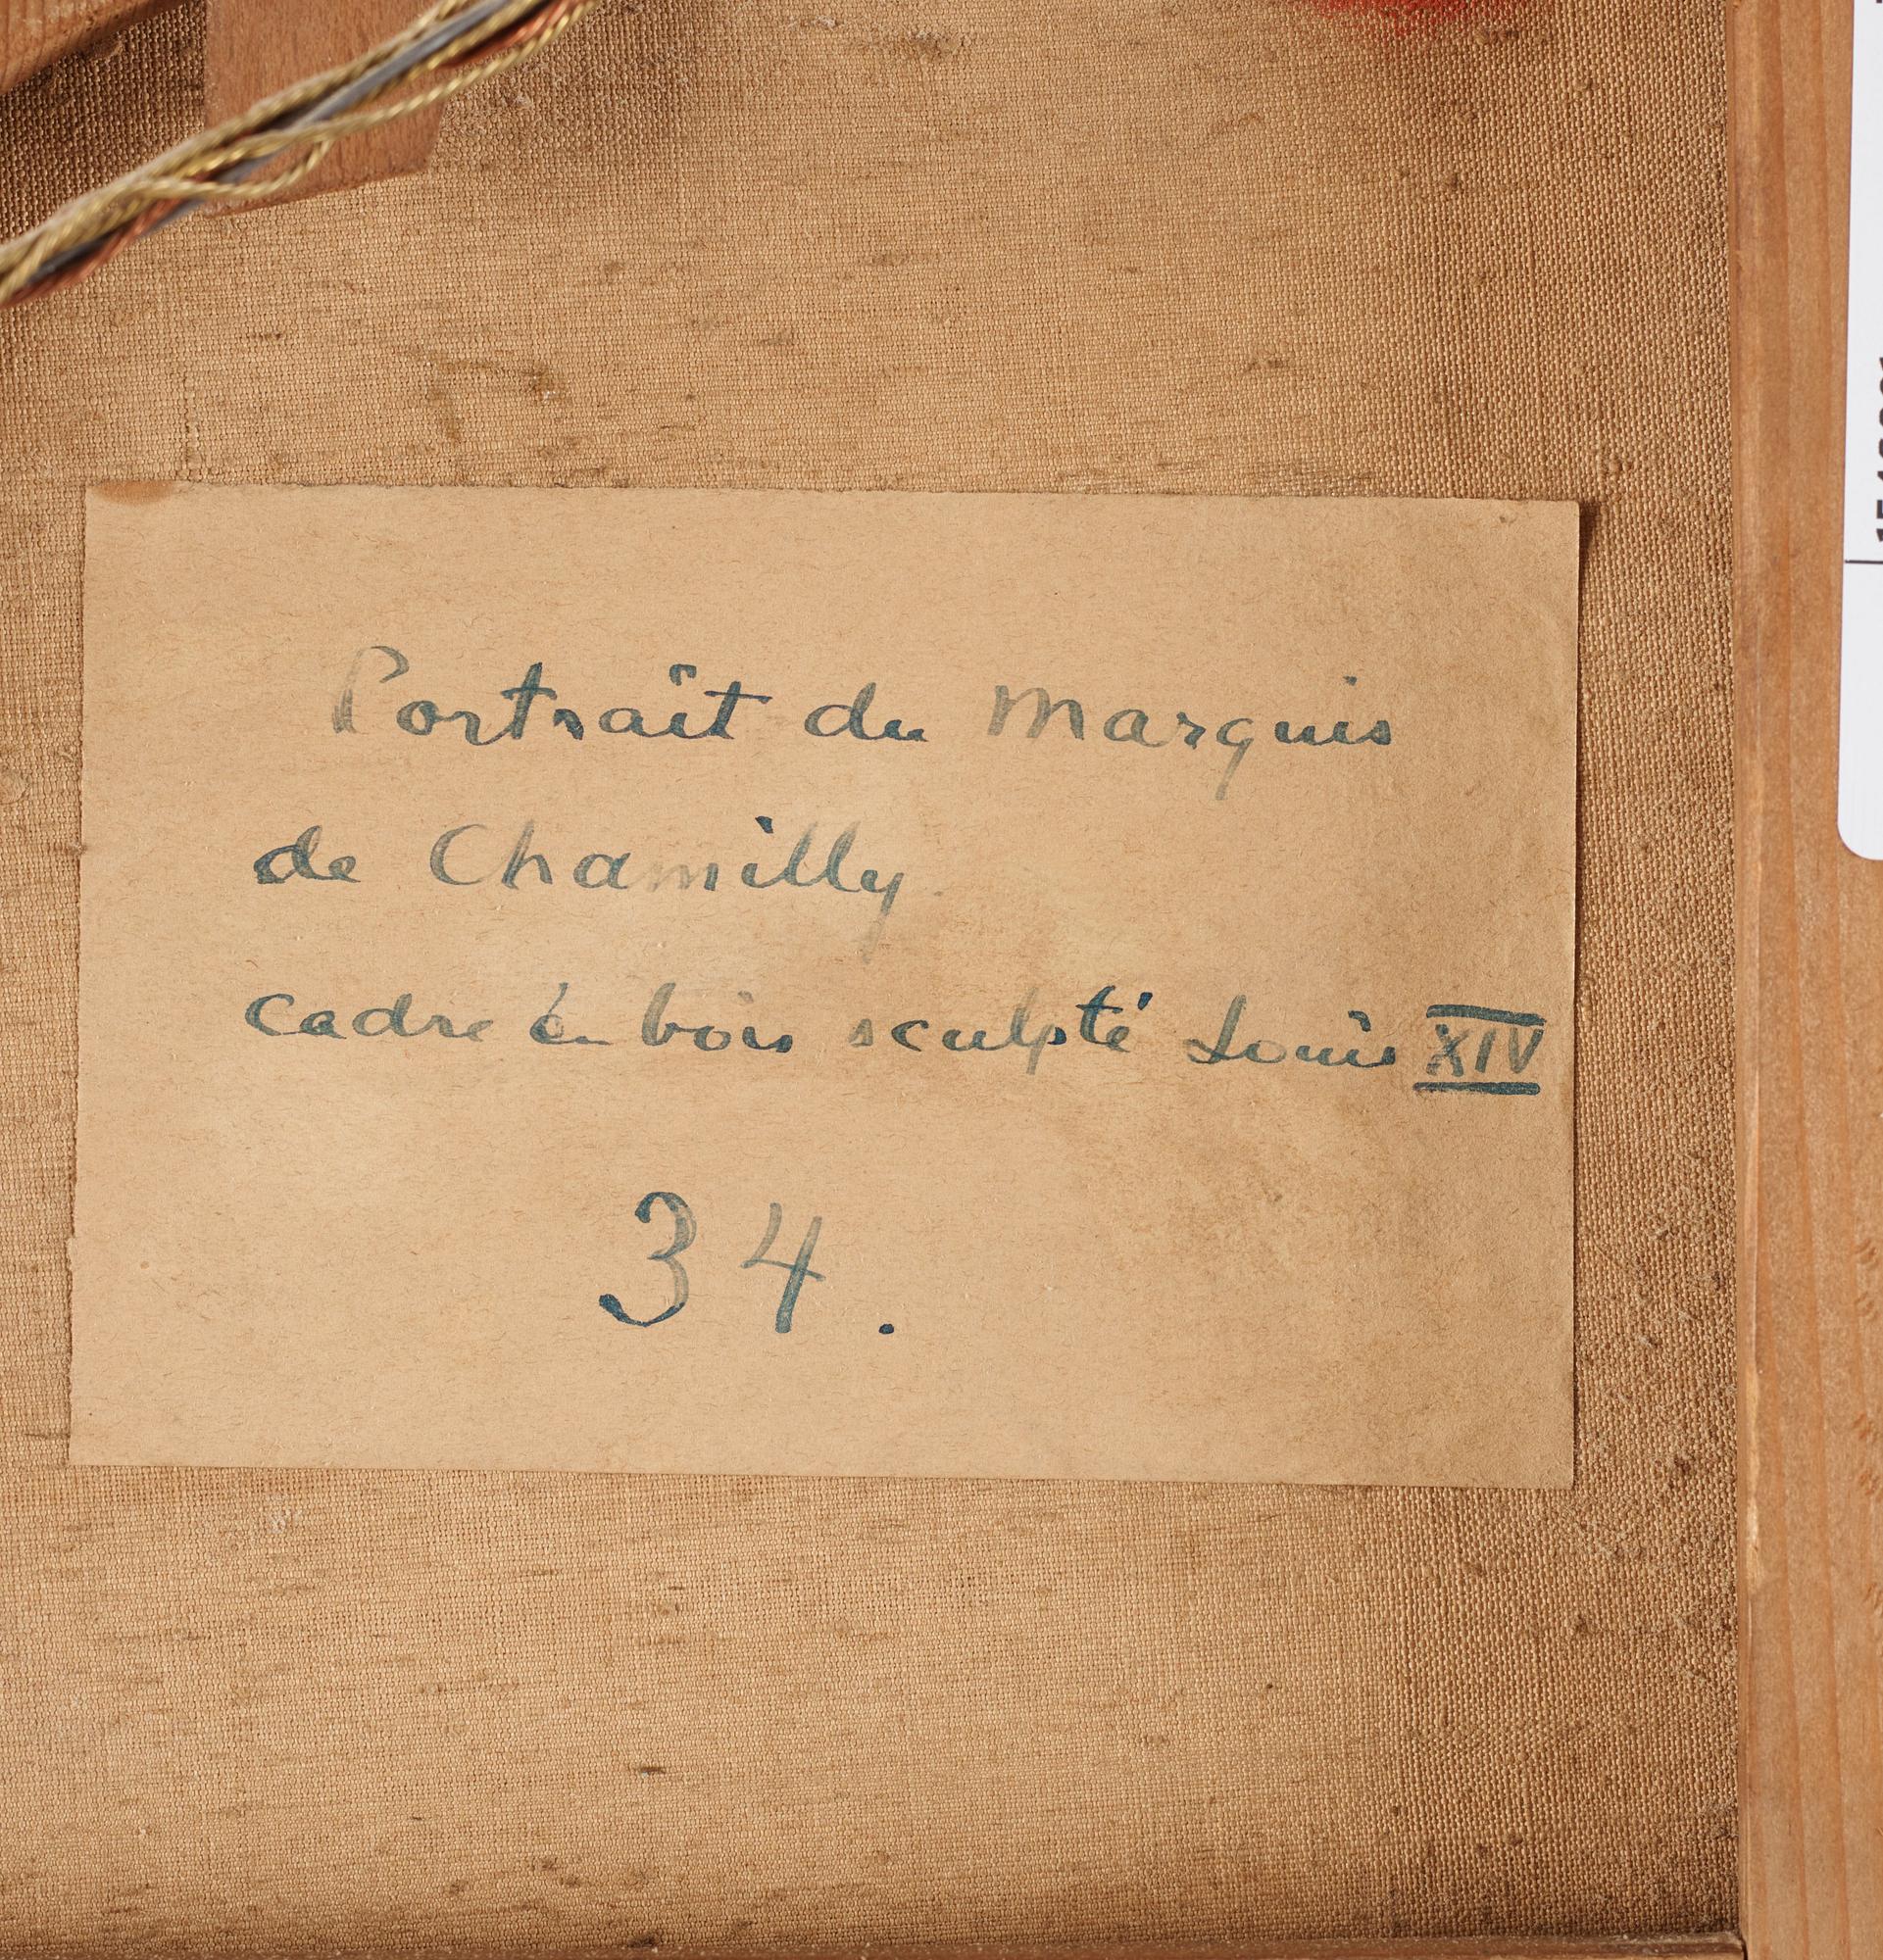 Portraît du Marquis
de Chamilly
cadre én bois sculpté Louis XIV
34.